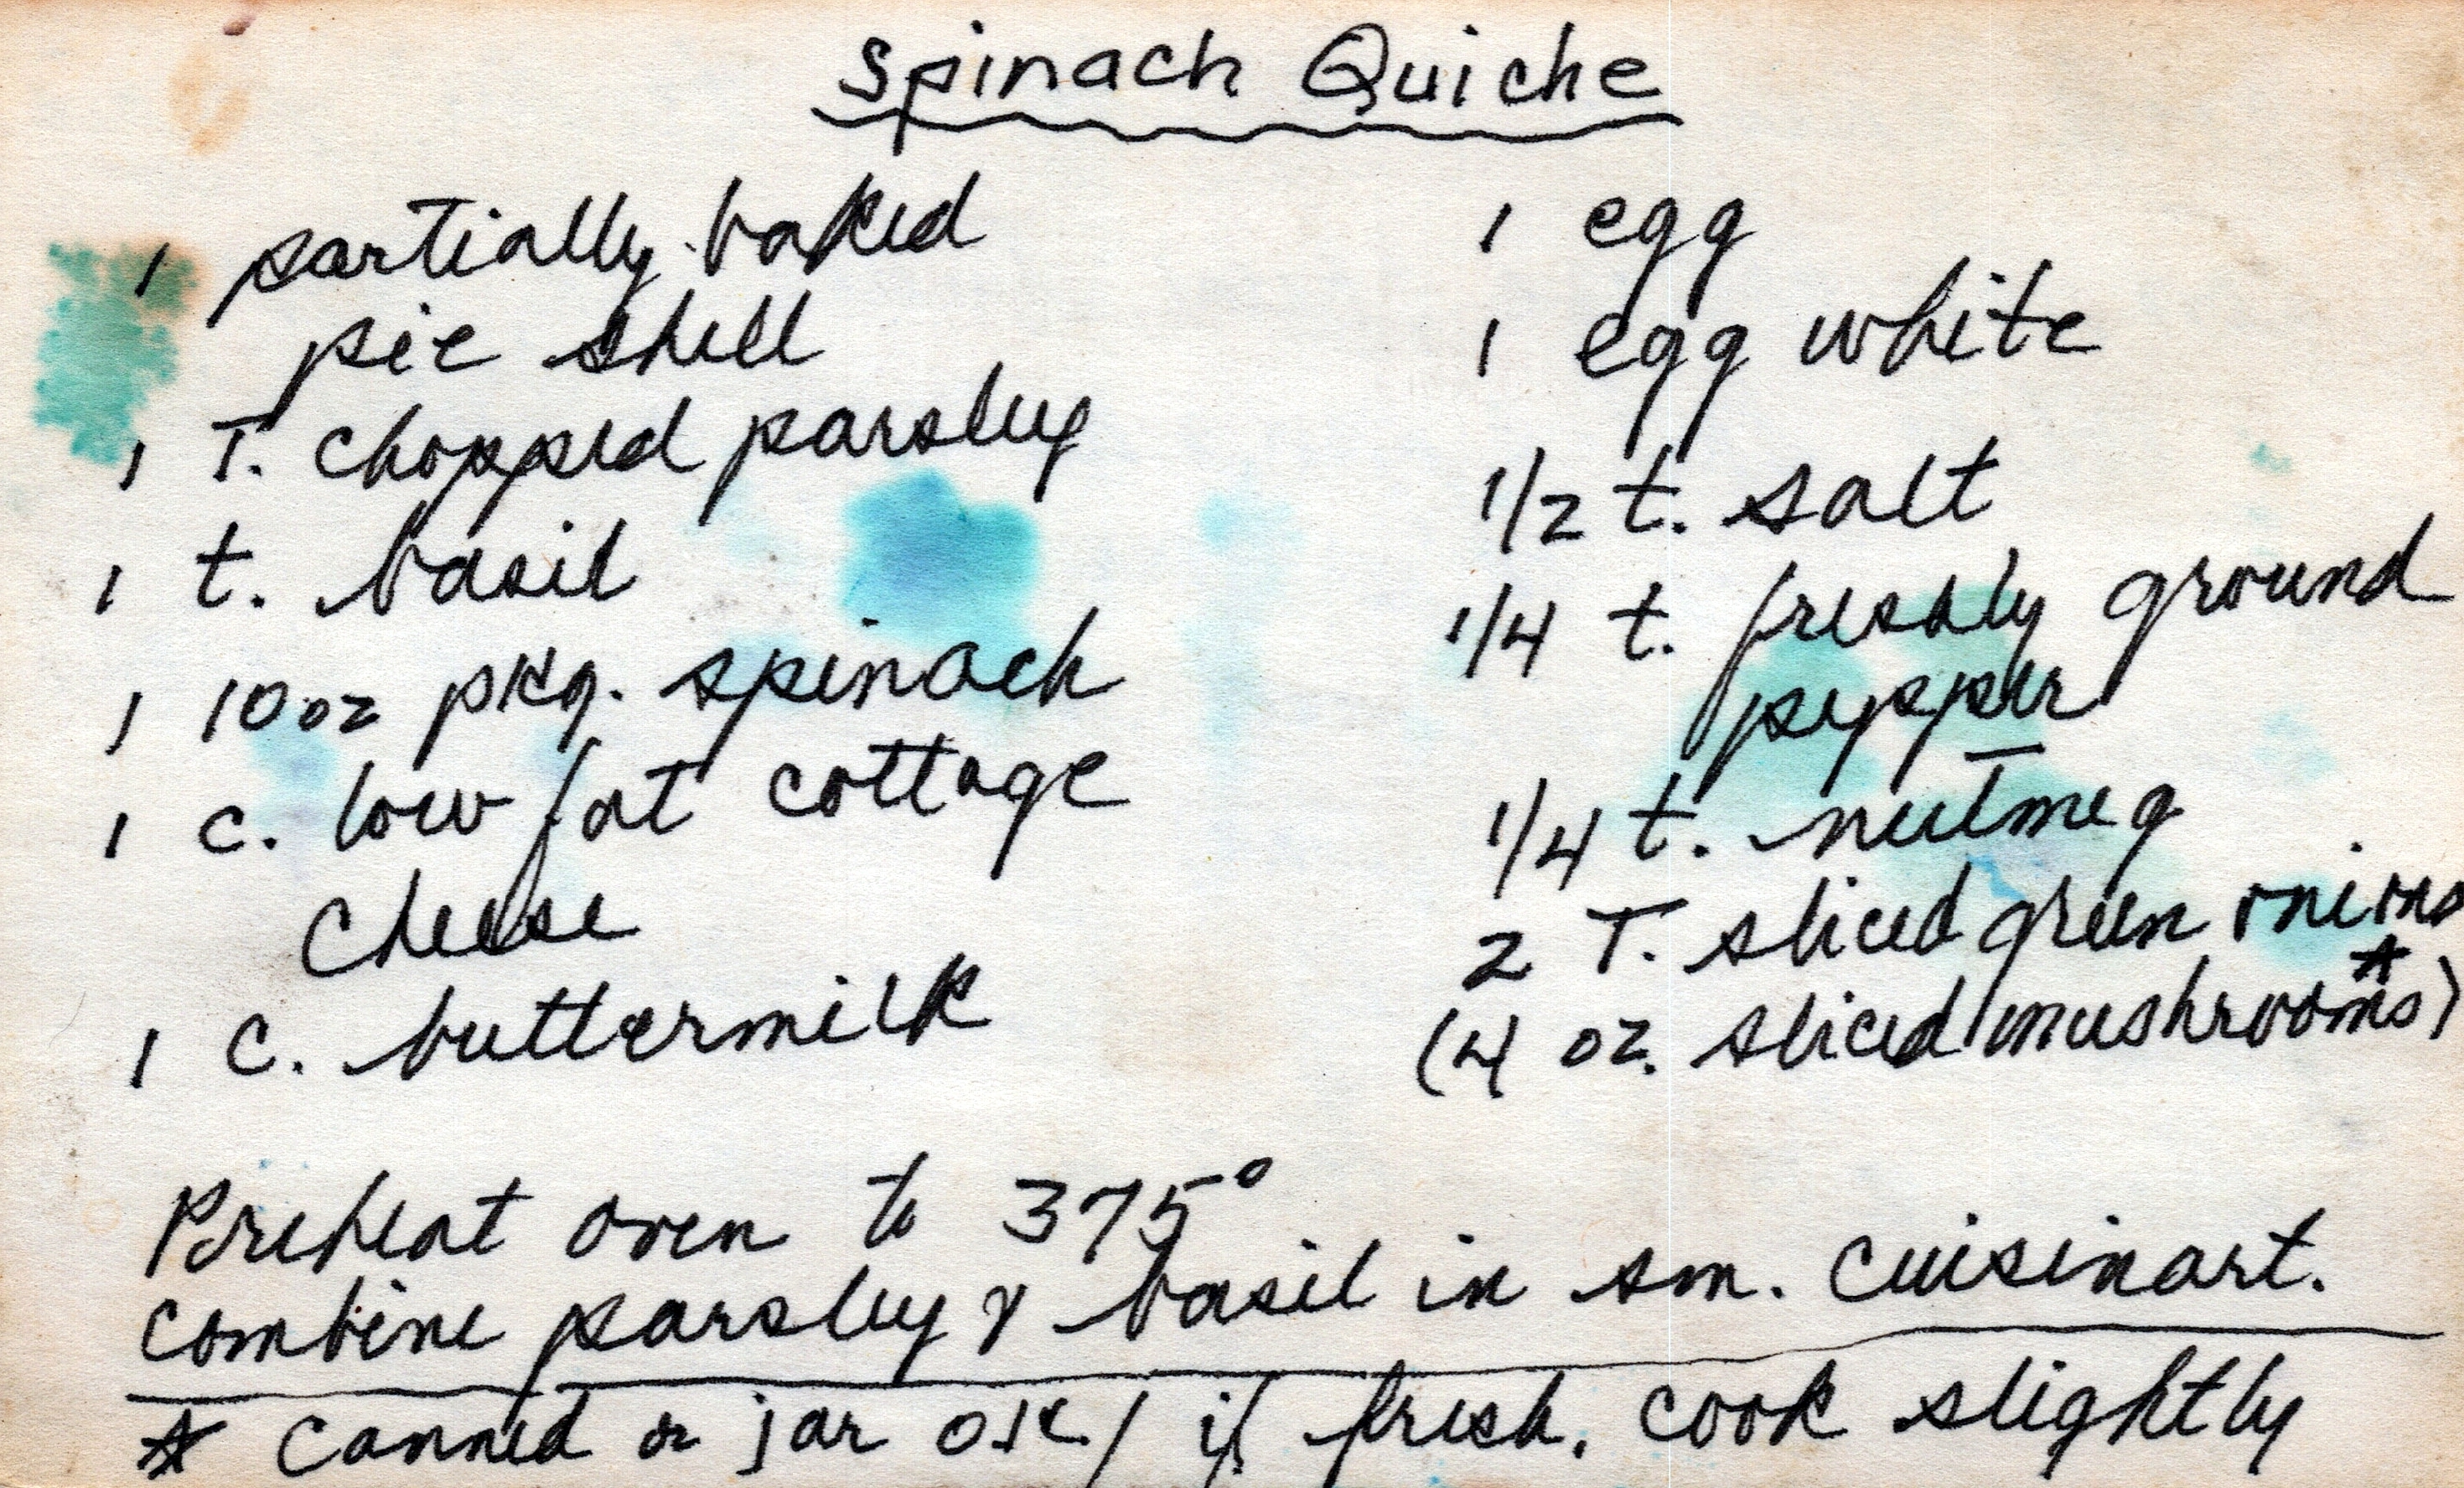 Spinach Quiche
1 partially baked
pie shell
1 T. chopped parsley
1 t. basil
1 10 oz pkg. spinach
1 c. low fat cottage
cheese
1 c. buttermilk
1 egg
1 egg white
1/2 t. salt
1/4 t. freshly ground
pepper
1/4 t. nutmeg
2 T. sliced green onions
(4 oz. sliced mushrooms*)
Preheat oven to 375°
Combine parsley & basil in sm. cuisinart.
* Canned or jar O.K./ if fresh, cook slightly